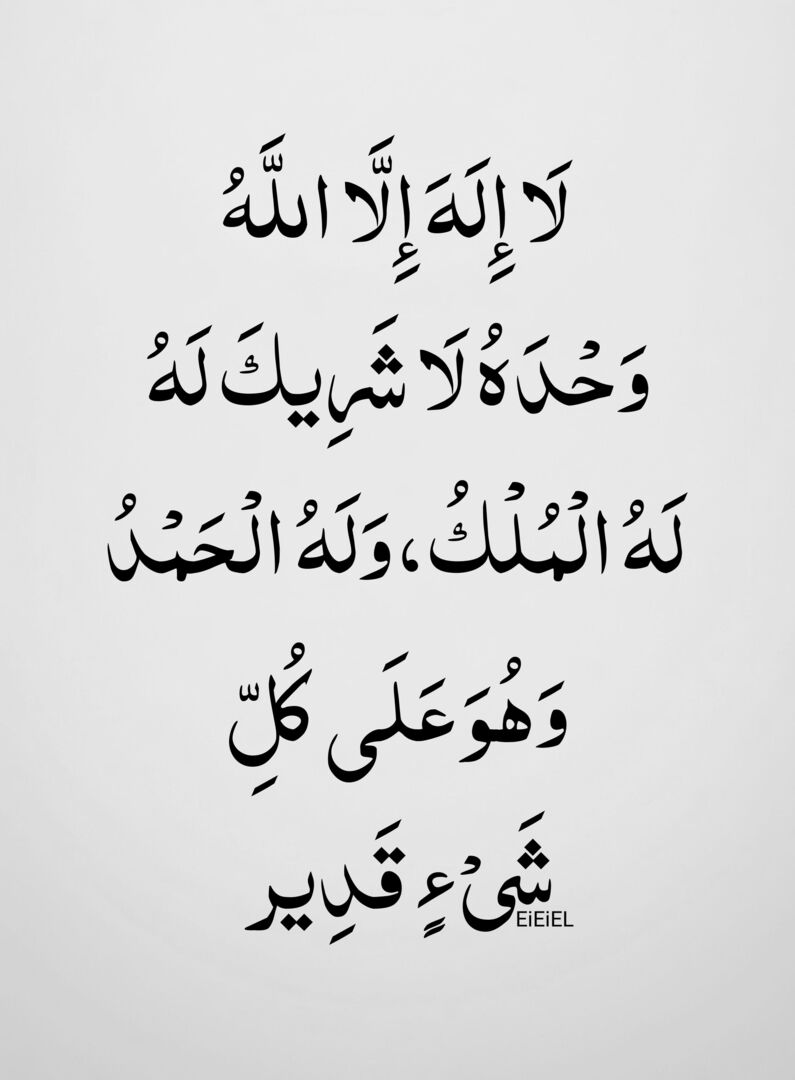 لَا إِلَهَ إِلَّا اللَّهُ
وَحْدَهُ لَا شَرِيكَ لَهُ
لَهُ الْمُلْكُ، وَلَهُ الْحَمْدُ
وَهُوَ عَلَى كُلِّ
شَيْءٍ قَدِير
EiEiEL